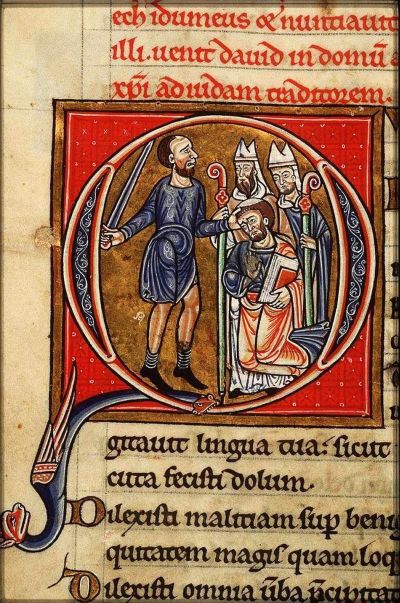 ech idumeus & nuntiauit
illi. uenit dauid in domū a
xp̄i ad iudam traditorem.
Q
gitauit lingua tua: sicut
cuta fecisti dolum.
Dilexisti malitiam sup̄ benig
quitatem magis quam loq
Dilexisti omnia ūba p̄cipitat